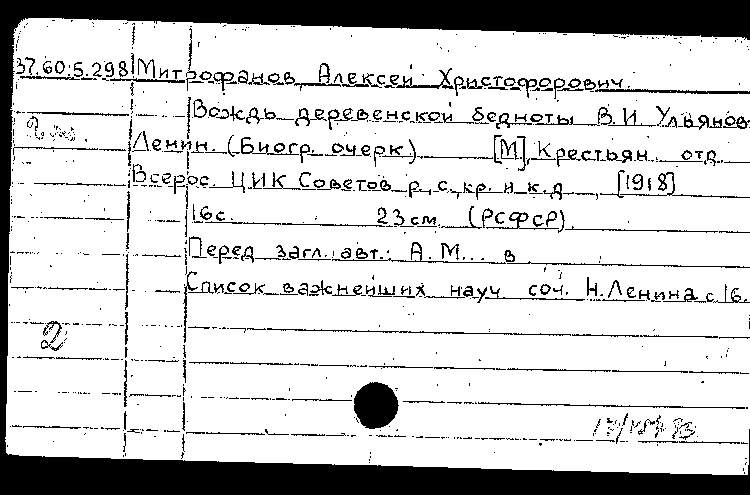 37.60.5.298 Митрофанов, Алексей Христофорович.
Вождь деревенской бедноты В.И. Ульянов-
Ленин. (Биогр. очерк) [М], Крестьян. отд.
Всерос. ЦИК Советов р., с., кр. и к.д., [1918]
16 с. 23 см. (РСФСР).
Перед загл. авт.: А. М... в
Список важнейших науч. соч. Н. Ленина с 16.
2